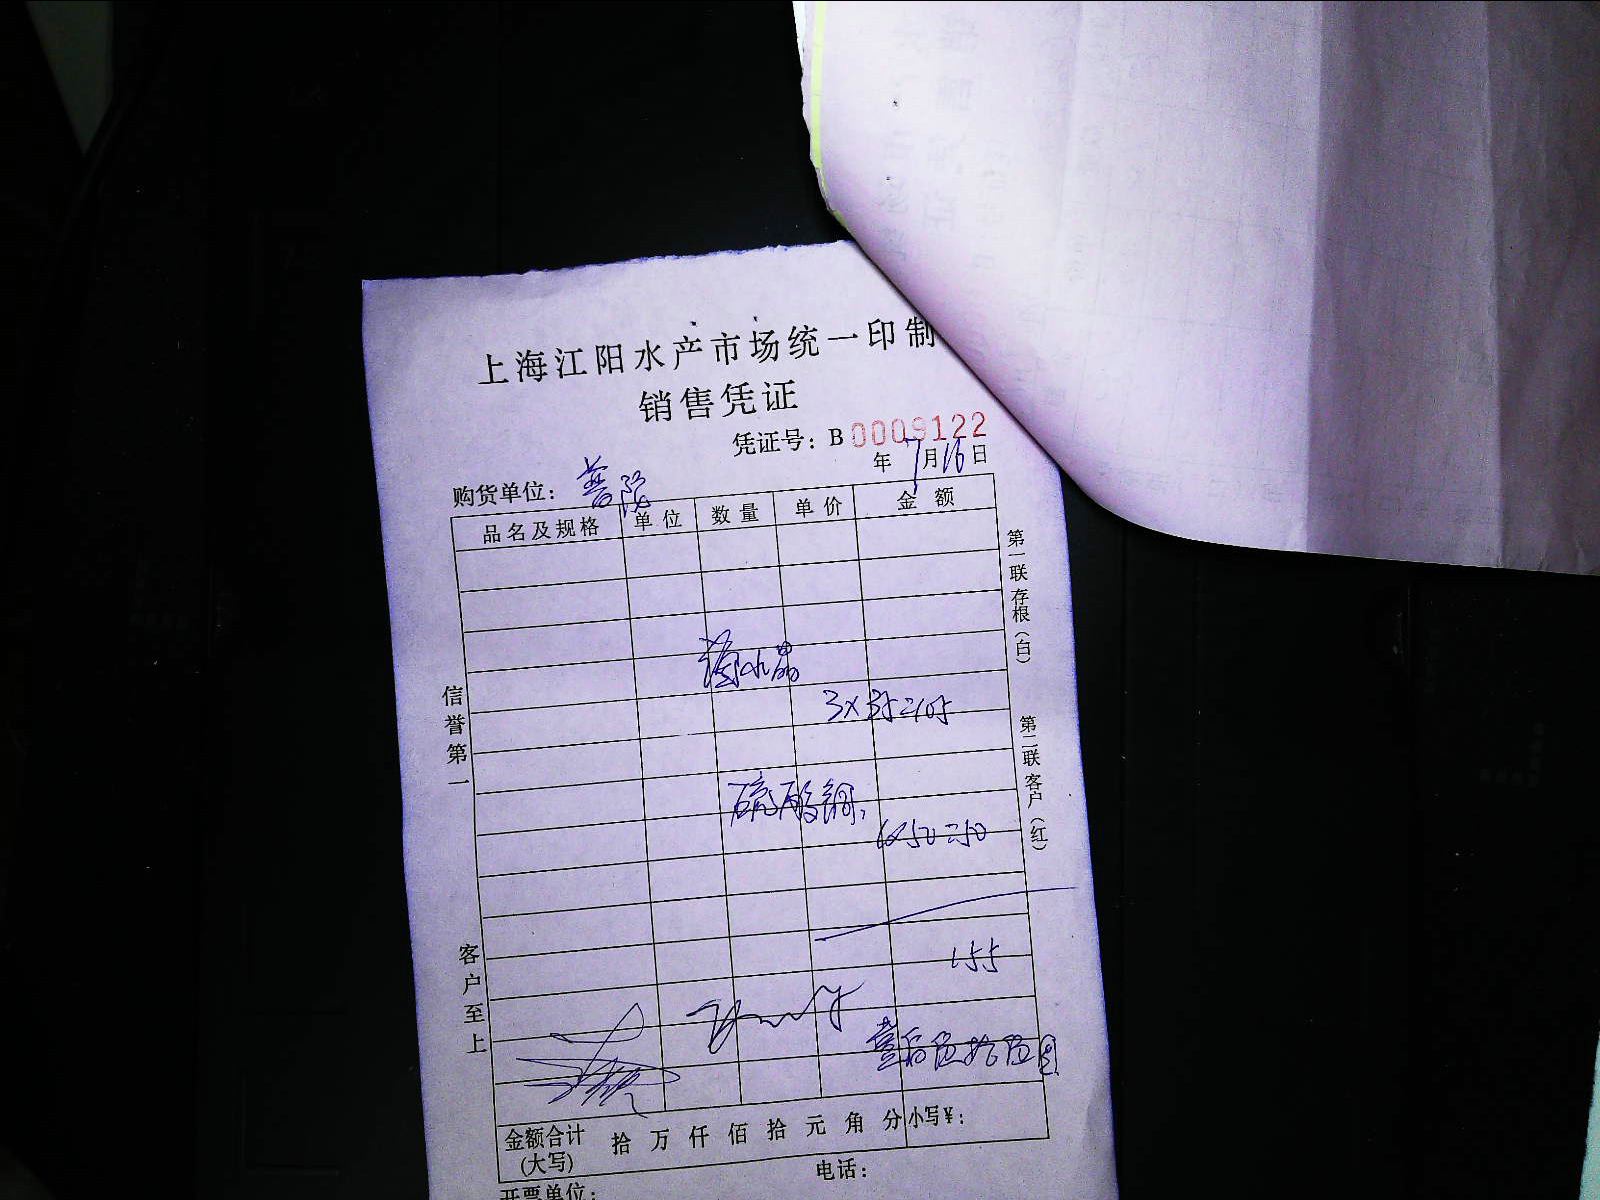 上海江阳水产市场统一印制
销售凭证
凭证号：B 0009122
年 7月16日
购货单位：普陀
品名及规格 单位 数量 单价 金额
水晶
3×35=105
硫酸铜
1×50=50
155
壹佰伍拾伍圆
金额合计(大写) 拾 万 仟 佰 拾 元 角 分 小写¥：
电话：
开票单位：
信誉第一
客户至上
第一联存根(白)
第二联客户(红)